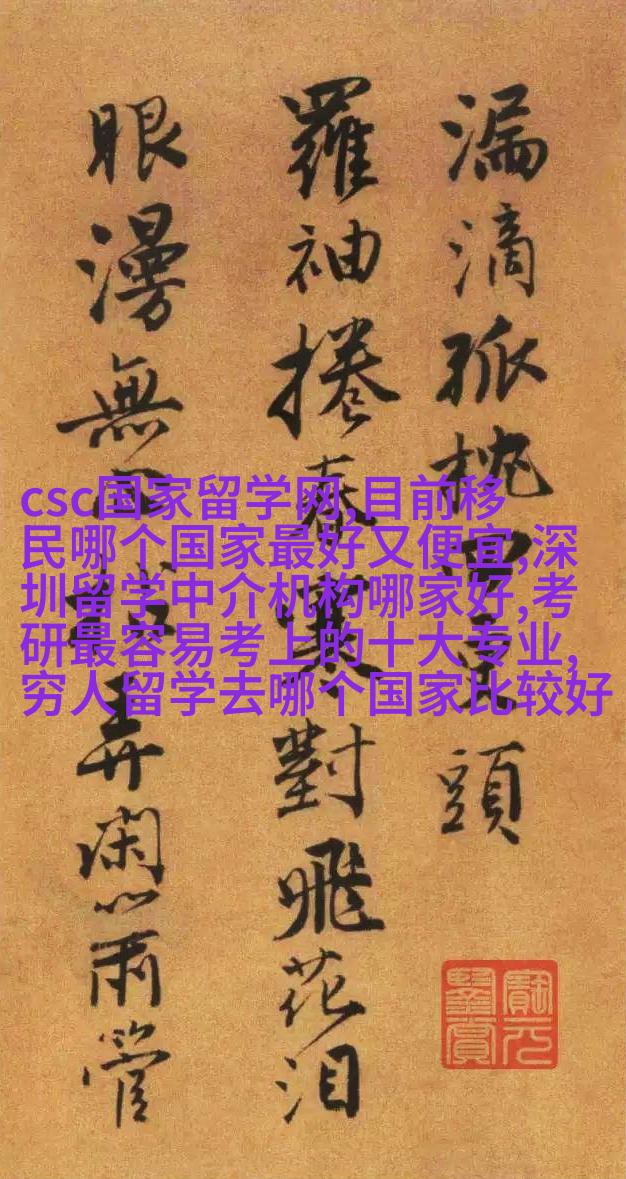 漏滴孤頭
羅袖捲春寒對飛花泪
眼漫無弄閑雨管
csc国家留学网,目前移
民哪个国家最好又便宜,深
圳留学中介机构哪家好,考
研最容易考上的十大专业,
穷人留学去哪个国家比较好